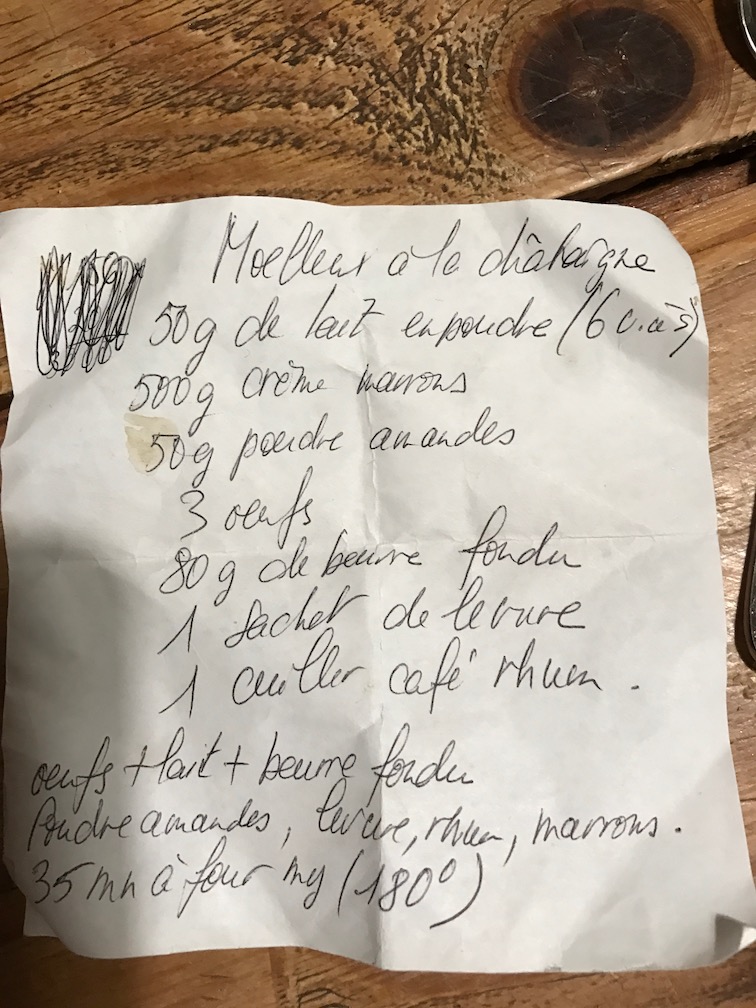 Moelleux à la châtaigne
50g de lait en poudre (6 c.à s)
500g crème marrons
50g poudre amandes
3 oeufs
80g de beurre fondu
1 sachet de levure
1 cuiller café rhum.
oeufs + lait + beurre fondu
Poudre amandes, levure, rhum, marrons.
35 mn à four my (180°)